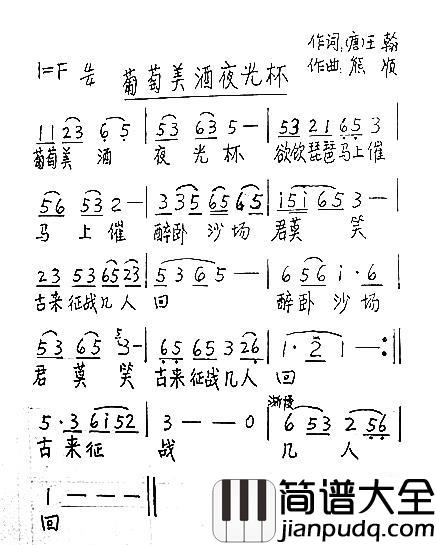 1=F 4/4 葡萄美酒夜光杯 作词:(唐)王翰
作曲:熊顺
1 1 2 3 6 5 | 5 3 6 3 5 — | 5 3 2 1 6 5 3
葡萄美 酒 夜 光 杯 欲饮琵琶马上催
5 6 5 3 2 — | 3 3 5 6 5 6 5 | i 5 i 6 5 3 —
马 上 催 醉卧 沙 场 君莫 笑
2 3 5 3 6 5 2 3 | 5 3 6 5 — | 6 5 6 i · 6
古来征战几人 回 醉卧 沙 场
5 3 6 5 3 — | 6 5 6 5 3 2 6 | 1 · 2 1 — :||
君 莫 笑 古来征战几人 回
渐慢
5 · 3 6 i 5 2 | 3 — — 0 | 6 5 3 2 5 6
古 来 征 战 几 人
1 — — — ||
回
简谱大全
jianpudq.com